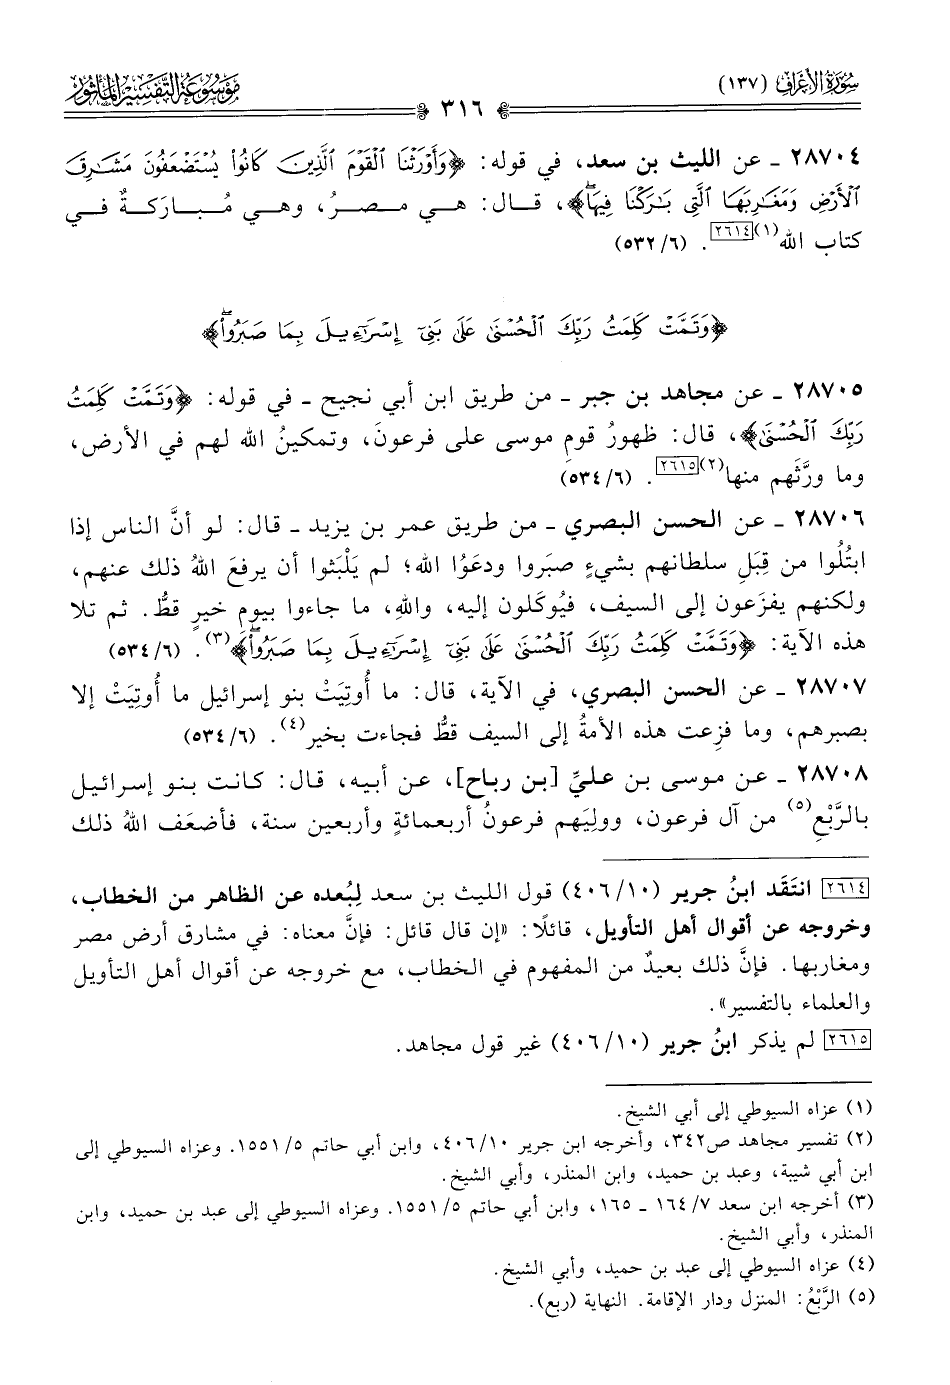 سُورَةُ الأَعْرَافِ (١٣٧)
٣١٦
مَوْسُوعَةُ التَّفْسِيرِ المَأْثُورِ
٢٨٧٠٤ ـ عن الليث بن سعد، في قوله: ﴿وَأَوْرَثْنَا ٱلْقَوْمَ ٱلَّذِينَ كَانُوا۟ يُسْتَضْعَفُونَ مَشَٰرِقَ
ٱلْأَرْضِ وَمَغَٰرِبَهَا ٱلَّتِى بَٰرَكْنَا فِيهَا ۖ﴾، قال: هي مصرُ، وهي مُبارَكةٌ في
كتاب الله(١)[٢٦١٤]. (٦/ ٥٣٢)
﴿وَتَمَّتْ كَلِمَتُ رَبِّكَ ٱلْحُسْنَىٰ عَلَىٰ بَنِىٓ إِسْرَٰٓءِيلَ بِمَا صَبَرُوا۟ ۖ﴾
٢٨٧٠٥ ـ عن مجاهد بن جبر ـ من طريق ابن أبي نجيح ـ في قوله: ﴿وَتَمَّتْ كَلِمَتُ
رَبِّكَ ٱلْحُسْنَىٰ﴾، قال: ظهورُ قومِ موسى على فرعونَ، وتمكينُ الله لهم في الأرض،
وما ورَّثَهم منها(٢)[٢٦١٥]. (٦/ ٥٣٤)
٢٨٧٠٦ ـ عن الحسن البصري ـ من طريق عمر بن يزيد ـ قال: لو أنَّ الناس إذا
ابتُلُوا من قِبَلِ سلطانهم بشيءٍ صبَروا ودعَوُا الله؛ لم يَلْبَثوا أن يرفعَ اللهُ ذلك عنهم،
ولكنهم يفزَعون إلى السيف، فيُوكَلون إليه، واللهِ، ما جاءوا بيومِ خيرٍ قطُّ. ثم تلا
هذه الآية: ﴿وَتَمَّتْ كَلِمَتُ رَبِّكَ ٱلْحُسْنَىٰ عَلَىٰ بَنِىٓ إِسْرَٰٓءِيلَ بِمَا صَبَرُوا۟ ۖ﴾(٣). (٦/ ٥٣٤)
٢٨٧٠٧ ـ عن الحسن البصري، في الآية، قال: ما أُوتِيَتْ بنو إسرائيل ما أُوتِيَتْ إلا
بصبرهم، وما فزِعت هذه الأمةُ إلى السيف قطُّ فجاءت بخير(٤). (٦/ ٥٣٤)
٢٨٧٠٨ ـ عن موسى بن عليِّ [بن رباح]، عن أبيه، قال: كانت بنو إسرائيل
بالرَّبْعِ(٥) من آل فرعون، ووليَهم فرعونُ أربعمائةٍ وأربعين سنة، فأضعَف اللهُ ذلك
[٢٦١٤] انتَقَد ابنُ جرير (١٠/ ٤٠٦) قول الليث بن سعد لِبُعده عن الظاهر من الخطاب،
وخروجه عن أقوال أهل التأويل، قائلًا: «إن قال قائل: فإنَّ معناه: في مشارق أرض مصر
ومغاربها. فإنَّ ذلك بعيدٌ من المفهوم في الخطاب، مع خروجه عن أقوال أهل التأويل
والعلماء بالتفسير».
[٢٦١٥] لم يذكر ابنُ جرير (١٠/ ٤٠٦) غير قول مجاهد.
(١) عزاه السيوطي إلى أبي الشيخ.
(٢) تفسير مجاهد ص٣٤٢، وأخرجه ابن جرير ١٠/ ٤٠٦، وابن أبي حاتم ٥/ ١٥٥١. وعزاه السيوطي إلى
ابن أبي شيبة، وعبد بن حميد، وابن المنذر، وأبي الشيخ.
(٣) أخرجه ابن سعد ٧/ ١٦٤ ـ ١٦٥، وابن أبي حاتم ٥/ ١٥٥١. وعزاه السيوطي إلى عبد بن حميد، وابن
المنذر، وأبي الشيخ.
(٤) عزاه السيوطي إلى عبد بن حميد، وأبي الشيخ.
(٥) الرَّبْعُ: المنزل ودار الإقامة. النهاية (ربع).